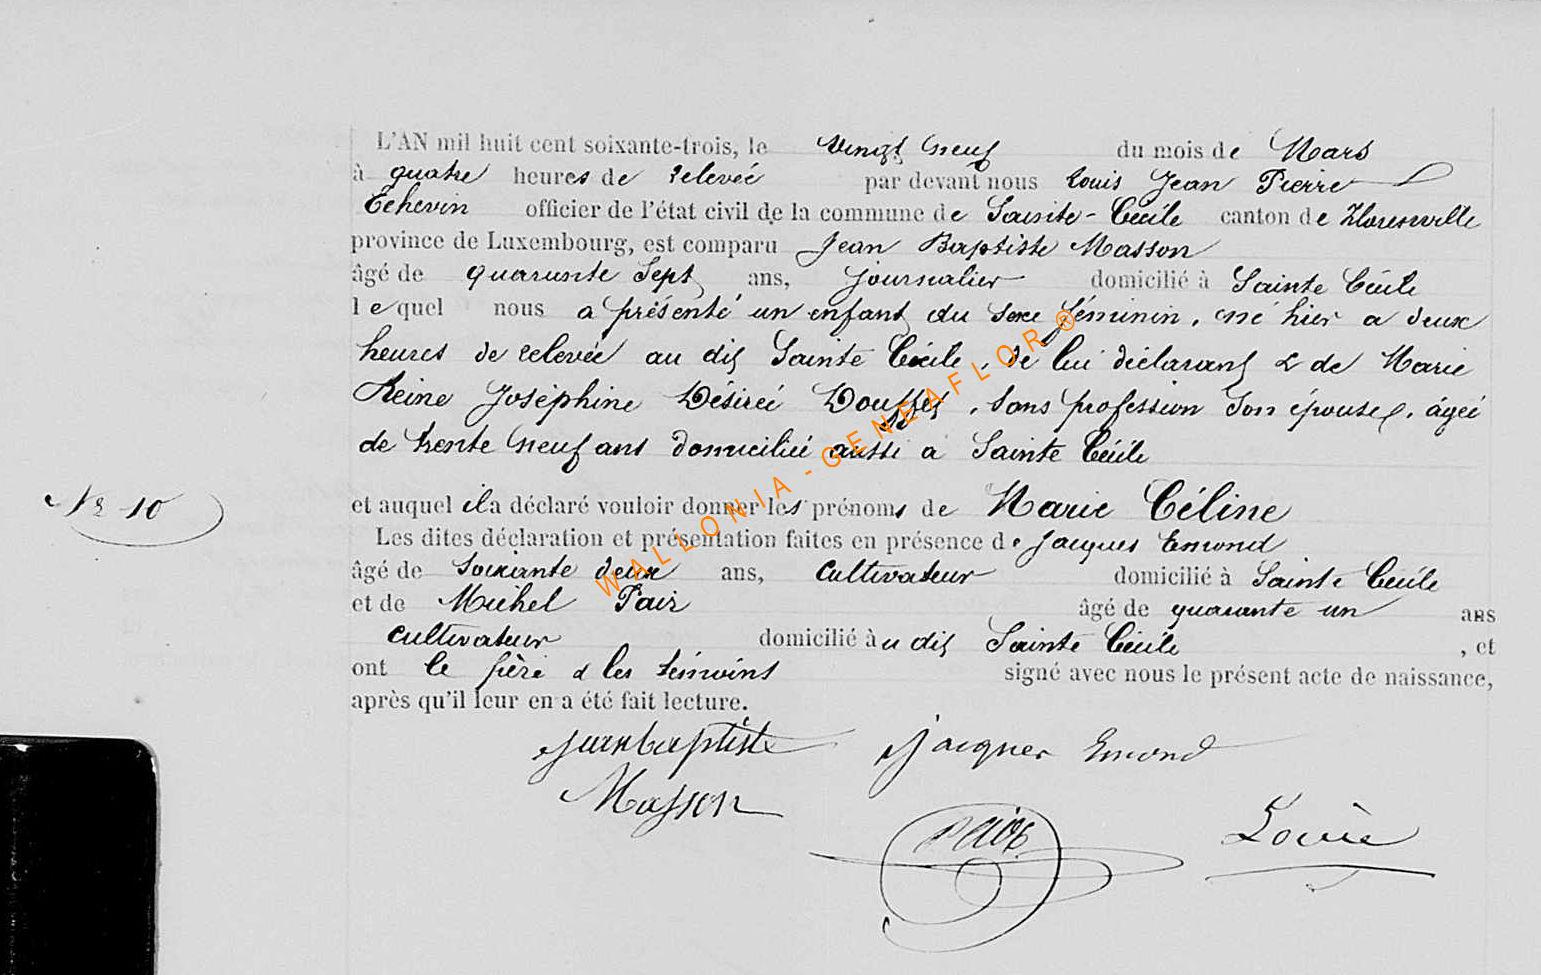 L'AN mil huit cent soixante-trois, le vingt neuf du mois de Mars
à quatre heures de relevée par devant nous Louis Jean Pierre
Echevin officier de l'état civil de la commune de Sainte-Cécile canton de Florenville
province de Luxembourg, est comparu Jean Baptiste Masson
âgé de quarante sept ans, journalier domicilié à Sainte Cécile
lequel nous a présenté un enfant du sexe féminin, né hier a deux
heures de relevée au dit Sainte Cécile, de lui déclarant & de Marie
Reine Joséphine Désireé Douffet, sans profession son épouse, âgeé
de trente neuf ans domiciliée aussi a Sainte Cécile
N° 10
et auquel il a déclaré vouloir donner les prénoms de Marie Céline
Les dites déclaration et présentation faites en présence de Jacques Emond
âgé de soixante deux ans, cultivateur domicilié à Sainte Cécile
et de Michel Paix âgé de quarante un ans
cultivateur domicilié àu dit Sainte Cécile, et
ont le père & les témoins signé avec nous le présent acte de naissance,
après qu'il leur en a été fait lecture.
Jeanbaptiste Jacques Emond
Masson
Paix Louis
WALLONIA - GENEAFLOR ®